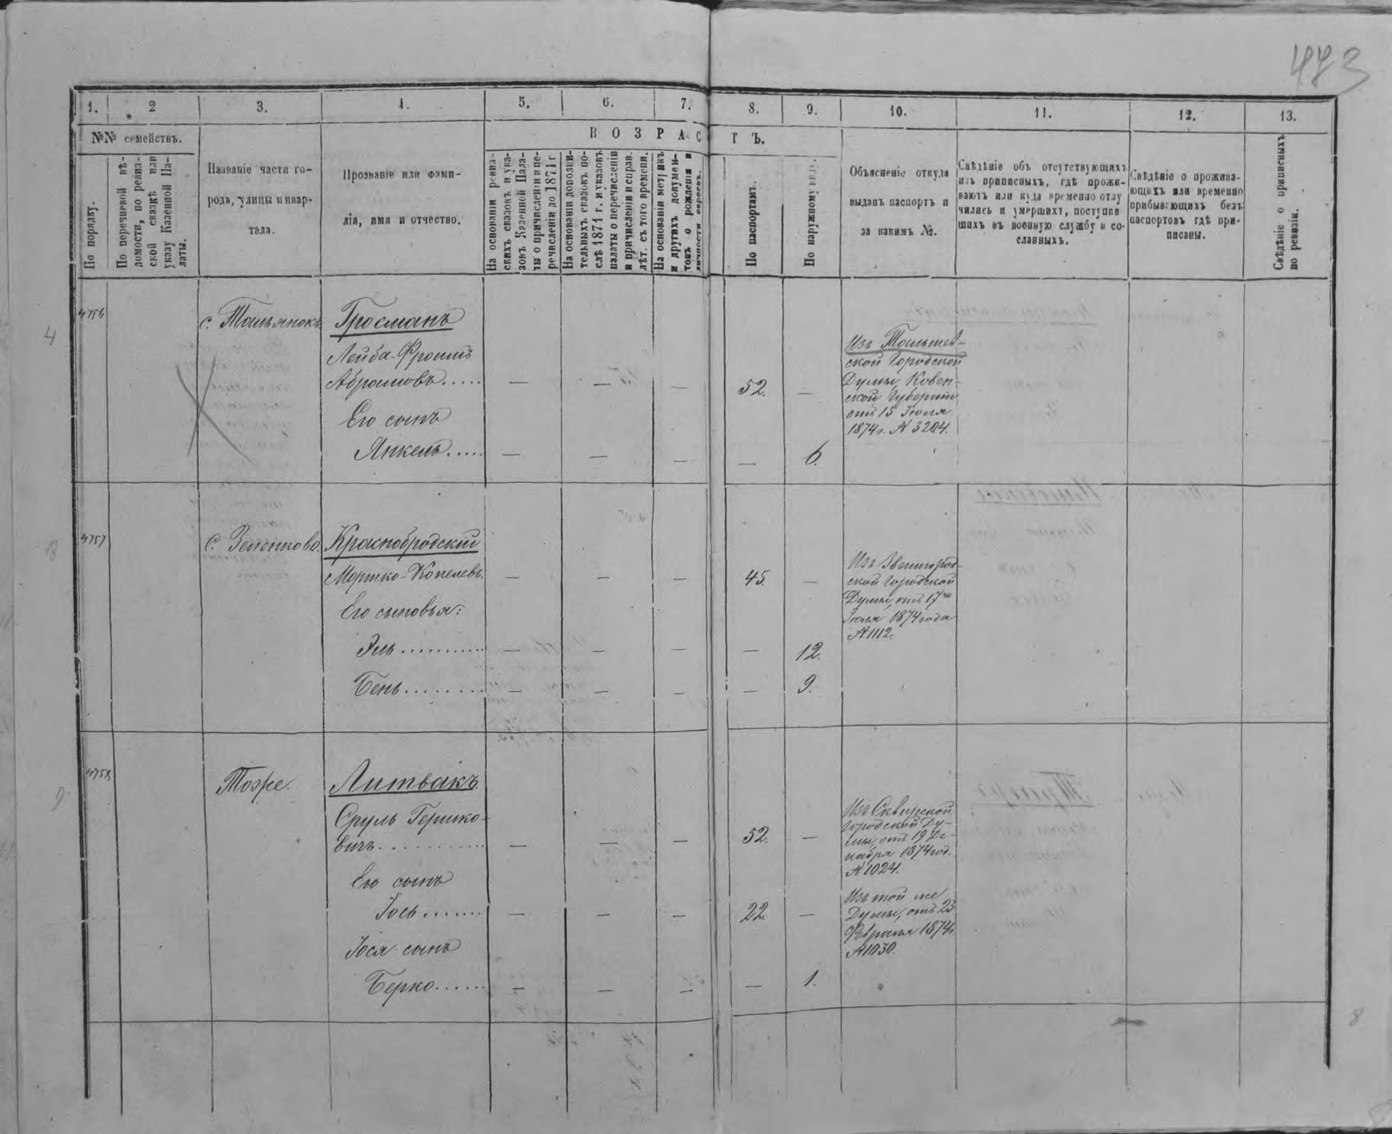 473
1.
2
3.
4.
5.
6.
7.
8.
9.
10.
11.
12.
13.
№№ семействъ.
ВОЗРАСТЪ.
По порядку.
По перечневой вѣ-
домости, по ревиз-
ской сказкѣ или
указу Казенной Па-
латы.
Названіе части го-
рода, улицы и квар-
тала.
Прозваніе или фами-
лія, имя и отчество.
На основаніи ревиз-
скихъ сказокъ и ука-
зовъ Казенной Пала-
ты о причисленіи и пе-
речисленіи до 1871 г
На основаніи дополни-
тельныхъ сказокъ по-
слѣ 1871 г. и указовъ
палаты о перечисленіи
и причисленіи и справ.
лѣт. съ того времени.
На основаніи метрикъ
и другихъ докумен-
товъ о рожденіи и
личности евреевъ.
По паспортамъ.
По наружному виду.
Объясненіе откуда
выданъ паспортъ и
за какимъ №.
Свѣдѣніе объ отсутствующихъ
изъ приписныхъ, гдѣ прожи-
ваютъ или куда временно отлу
чились и умершихъ, поступив-
шихъ въ военную службу и со-
сланныхъ.
Свѣдѣніе о прожива-
ющихъ или временно
прибывающихъ безъ
паспортовъ гдѣ при-
писаны.
Свѣдѣніе о приписныхъ
по ревизіи.
4
4756
с. Тальянокъ
Гросманъ
Лейба-Фроимъ
Абрамовъ..... — — — 52. —
Его сынъ
Янкель..... — — — — 6.
Изъ Тельшев-
ской Городской
Думы, Ковен-
ской Губерніи
отъ 15 Іюля
1874 г. №3204.
8
4757
С. Зеленково.
Краснобродскій
Мошко-Копелевъ. — — — 45. —
Его сыновья:
Эль.......... — — — — 12.
Бень......... — — — — 9.
Изъ Звенигород-
ской Городской
Думы, отъ 17го
Іюля 1874 года
№1112.
9
4758
Тоже.
Литвакъ
Сруль Гершко-
вичъ.......... — — — 52. —
Его сынъ
Іось....... — — — 22. —
Іося сынъ
Берко...... — — — — 1.
Изъ Сквирской
Городской Ду-
мы, отъ 19 Де-
кабря 1874 год.
№1024.
Изъ той же
Думы, отъ 23
Февраля 1874г
№1030.
8